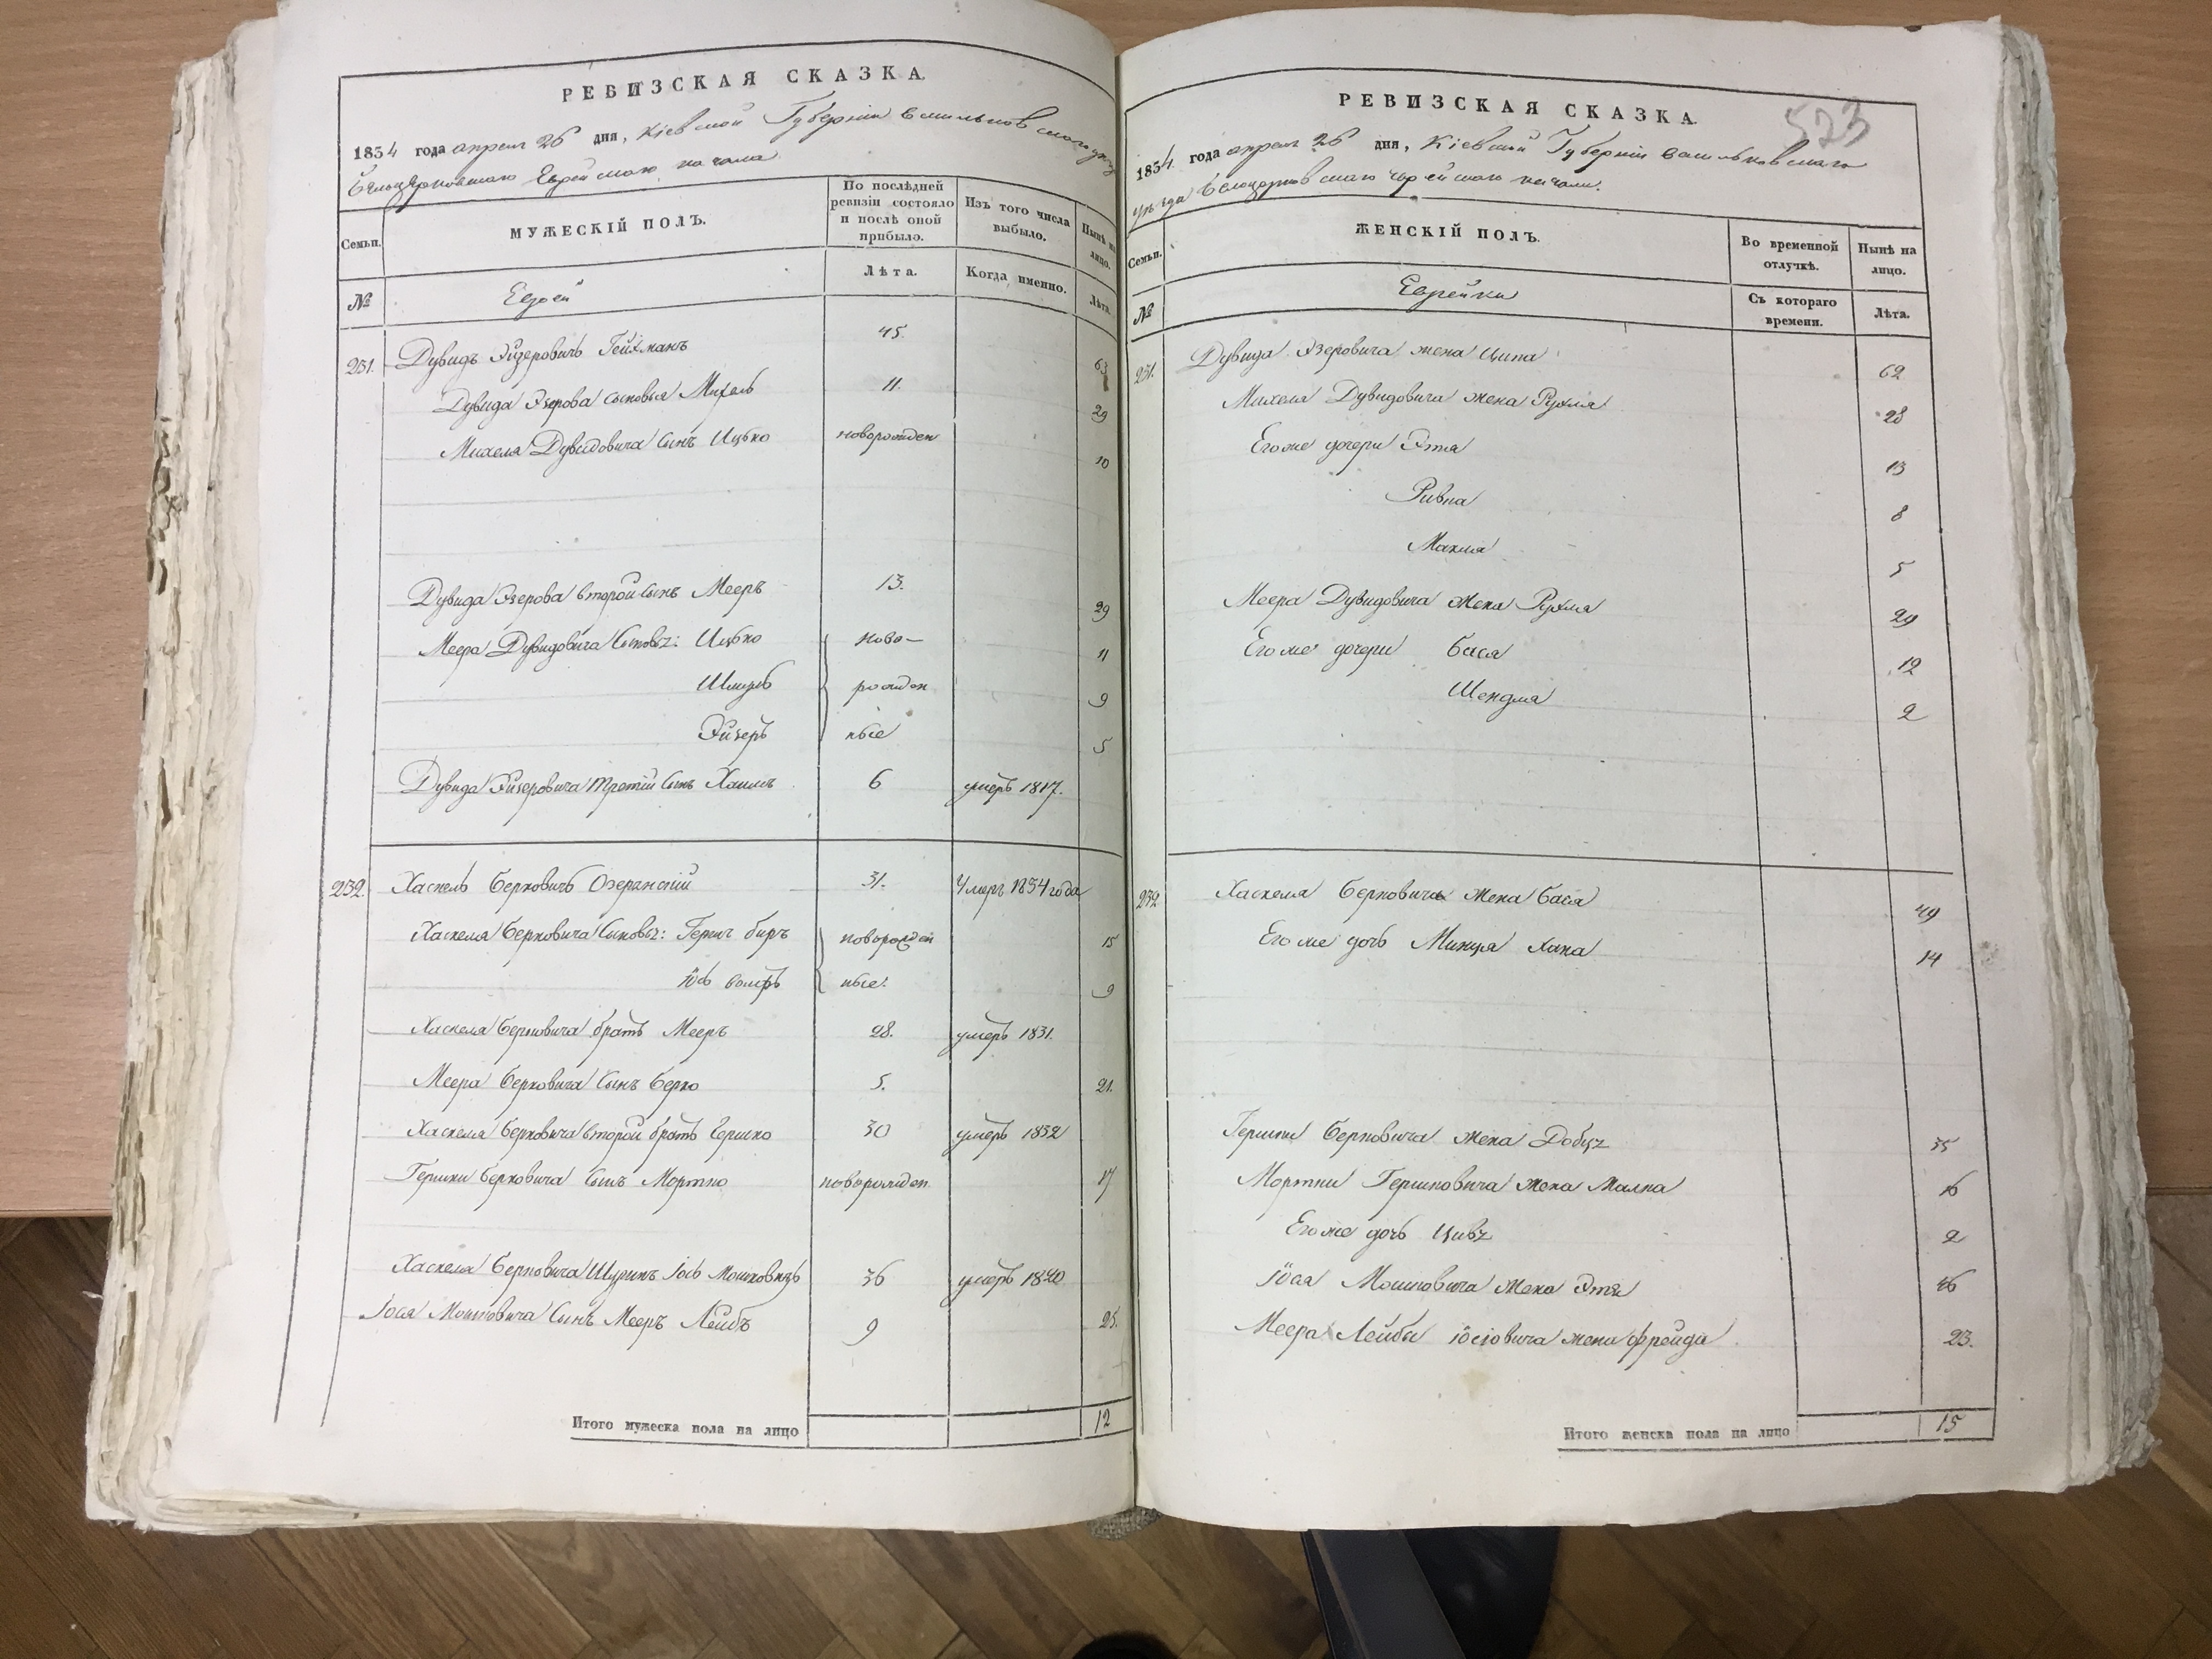 РЕВИЗСКАЯ СКАЗКА.
1834 года апреля 26 дня, Кіевской Губерніи Васильковскаго уезда
Белоцерковскаго Еврейскаго кагала.
Семьи.
МУЖЕСКІЙ ПОЛЪ.
По послѣдней ревизіи состояло и послѣ оной прибыло.
Изъ того числа выбыло.
Нынѣ на лицо.
№
Евреи
Лѣта.
Когда именно.
Лѣта.
231. Дувидъ Эйзеровичъ Гейхманъ 45. 63
Дувида Эзерова сыновья Михель 11. 29
Михеля Дувидовича сынъ Ицько новорожден 10
Дувида Эзерова второй сынъ Мееръ 13. 29
Меера Дувидовича сыновьѣ: Ицько ново- 11
Шмуль рожден 9
Эйзеръ ные 5
Дувида Эйзеровича третій сынъ Хаимъ 6 умеръ 1817.
232. Хаскель Берковичъ Озеранскій 31. Умеръ 1834 года
Хаскеля Берковича сыновьѣ: Герш беръ новорожден 15
Іось вольфъ ные: 9
Хаскеля Берковича братъ Мееръ 28. умеръ 1831.
Меера Берковича сынъ Берко 5. 21.
Хаскеля Берковича второй братъ Гершко 30 умеръ 1832
Гершки Берковича сынъ Мортко новорожден 17
Хаскеля Берковича Шуринъ Іось Мошковичъ 36 умеръ 1820
Іося Мошковича сынъ Мееръ Лейбъ 9 25.
Итого мужеска пола на лицо 12
523
РЕВИЗСКАЯ СКАЗКА.
1834 года апреля 26 дня, Кіевской Губерніи Васильковскаго
уезда Белоцерковскаго еврейскаго кагала.
Семьи.
ЖЕНСКІЙ ПОЛЪ.
Во временной отлучкѣ.
Нынѣ на лицо.
№
Еврейки
Съ котораго времени.
Лѣта.
231. Дувида Эзеровича жена Ципа 62
Михеля Дувидовича жена Рухля 28
Его же дочери Этя 13
Ривка 8
Махля 5
Меера Дувидовича жена Рухля 29
Его же дочери Бася 12
Шендля 2
232 Хаскеля Берковича жена Бася 49
Его же дочь Минця Хана 14
Гершки Берковича жена Добцѣ 35
Мортки Гершковича жена Малка 16
Его же дочь Цивѣ 2
Іося Мошковича жена Этя 46
Меера Лейбы Іосіовича жена Фрейда 23.
Итого женска пола на лицо 15